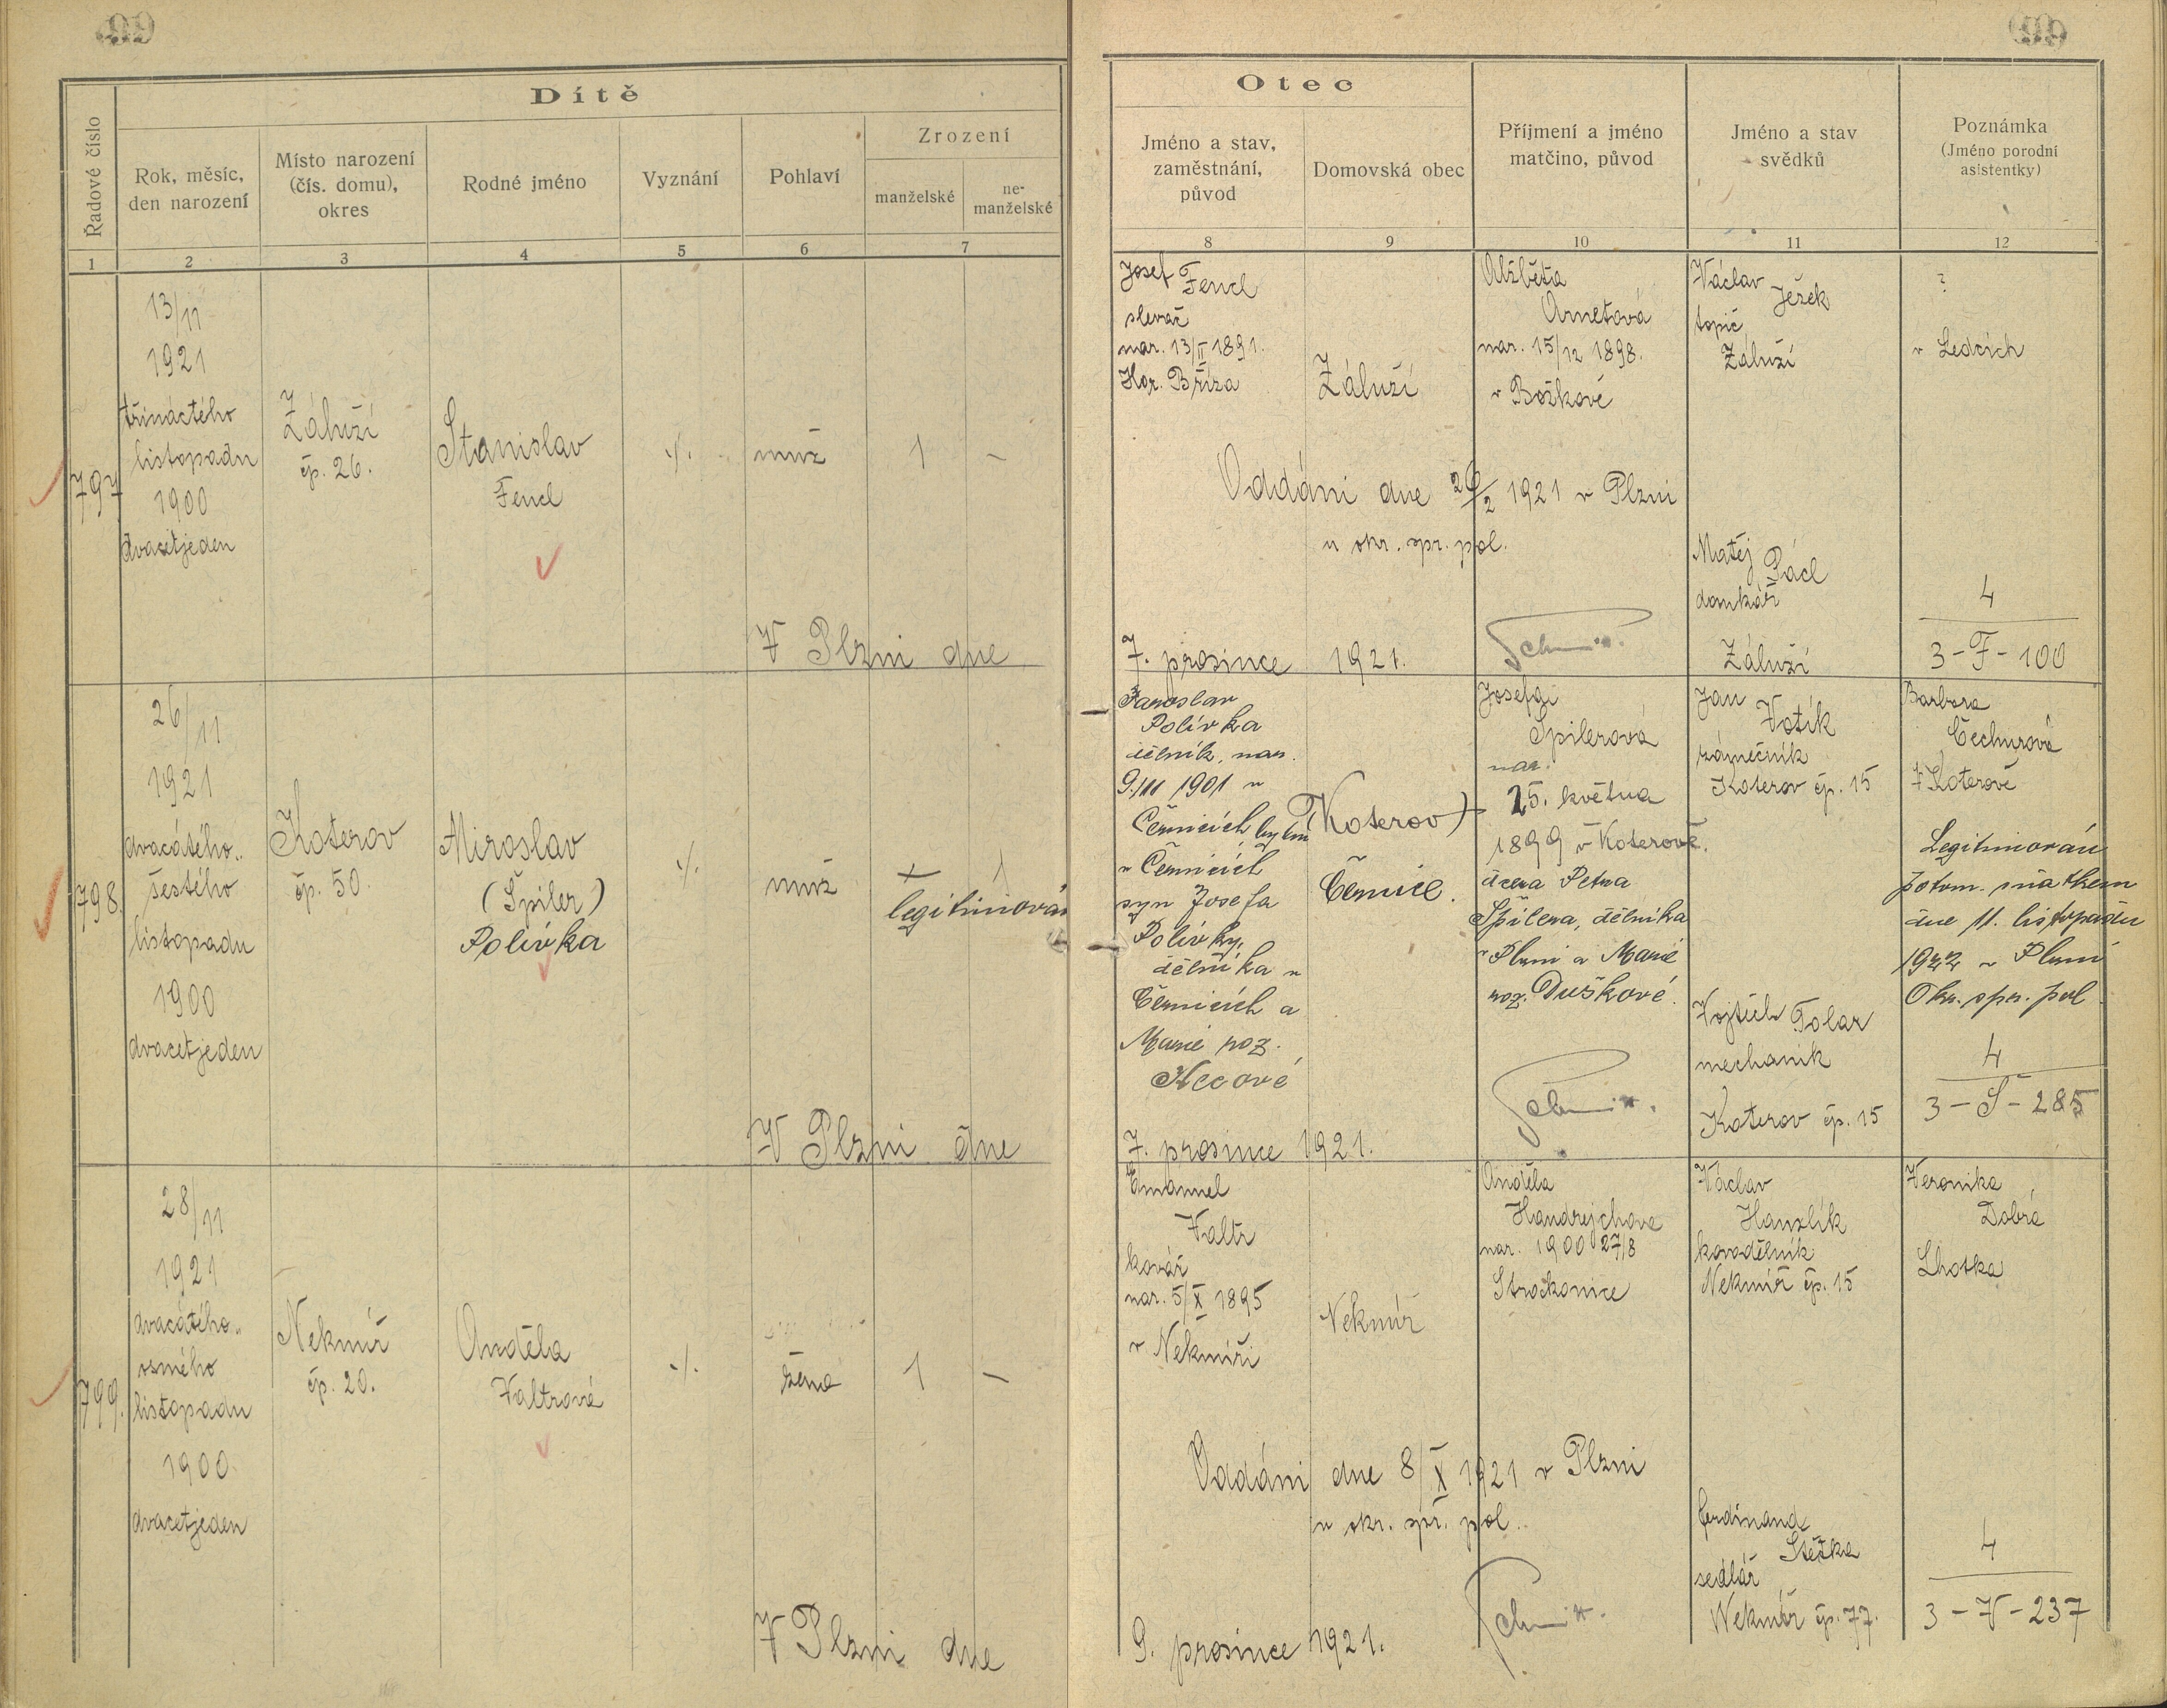 99
99
Dítě
Řadové číslo
Rok, měsíc,
den narození
Místo narození
(čís. domu),
okres
Rodné jméno
Vyznání
Pohlaví
Zrození
manželské
ne-
manželské
1
2
3
4
5
6
7
Otec
Jméno a stav,
zaměstnání,
původ
Domovská obec
Příjmení a jméno
matčino, původ
Jméno a stav
svědků
Poznámka
(Jméno porodní
asistentky)
8
9
10
11
12
797
13/11
1921
třináctého
listopadu
1900
dvacetjeden
Záluží
čp. 26.
Stanislav
Fencl
·/.
muž
1
–
V Plzni dne
Josef Fencl
slevač
nar. 13/II 1891.
Hor. Bříza
Záluží
Alžběta
Arnetová
nar. 15/12 1898.
v Božkově
Oddáni dne 26/2 1921 v Plzni
u okr. spr. pol.
7. prosince 1921.
Václav Ježek
topič
Záluží
Matěj Pácl
domkář
Záluží
?
v Ledcích
4
3-F-100
798.
26/11
1921
dvacátého..
šestého
listopadu
1900
dvacetjeden
Koterov
čp. 50.
Miroslav
(Špiler)
Polívka
·/.
muž
+ 1
legitimován
V Plzni dne
Jaroslav
Polívka
dělník, nar.
9./III 1901 v
Černicích bytem
v Černicích
syn Josefa
Polívky,
dělníka v
Černicích a
Marie roz.
Hecové
7. prosince 1921.
(Koterov)
Černice.
Josefa
Špilerová
nar.
25. května
1899 v Koterově.
dcera Petra
Špilera, dělníka
v Plzni a Marie
roz. Duškové.
Jan Votík
zámečník
Koterov čp. 15
Vojtěch Tolar
mechanik
Koterov čp. 15
Barbora
Čechurová
v Koterově
Legitimován
potom. sňatkem
dne 11. listopadu
1922 v Plzni
Okr. spr. pol.
4
3-Š-285
799.
28/11
1921
dvacátého..
osmého
listopadu
1900
dvacetjeden
Nekmíř
čp. 20.
Anděla
Valtrová
·/.
žena
1
–
V Plzni dne
Emanuel
Valtr
kovář
nar. 5/X 1895
v Nekmíři
Nekmíř
Anděla
Handrejchova
nar. 1900 27/8
Strockonice
Oddáni dne 8/X 1921 v Plzni
u okr. spr. pol.
9. prosince 1921.
Václav
Hanzlík
kovodělník
Nekmíř čp. 15
Ferdinand
Stežka
sedlář
Nekmíř čp. 77.
Veronika
Dobrá
Lhotka
4
3-V-237